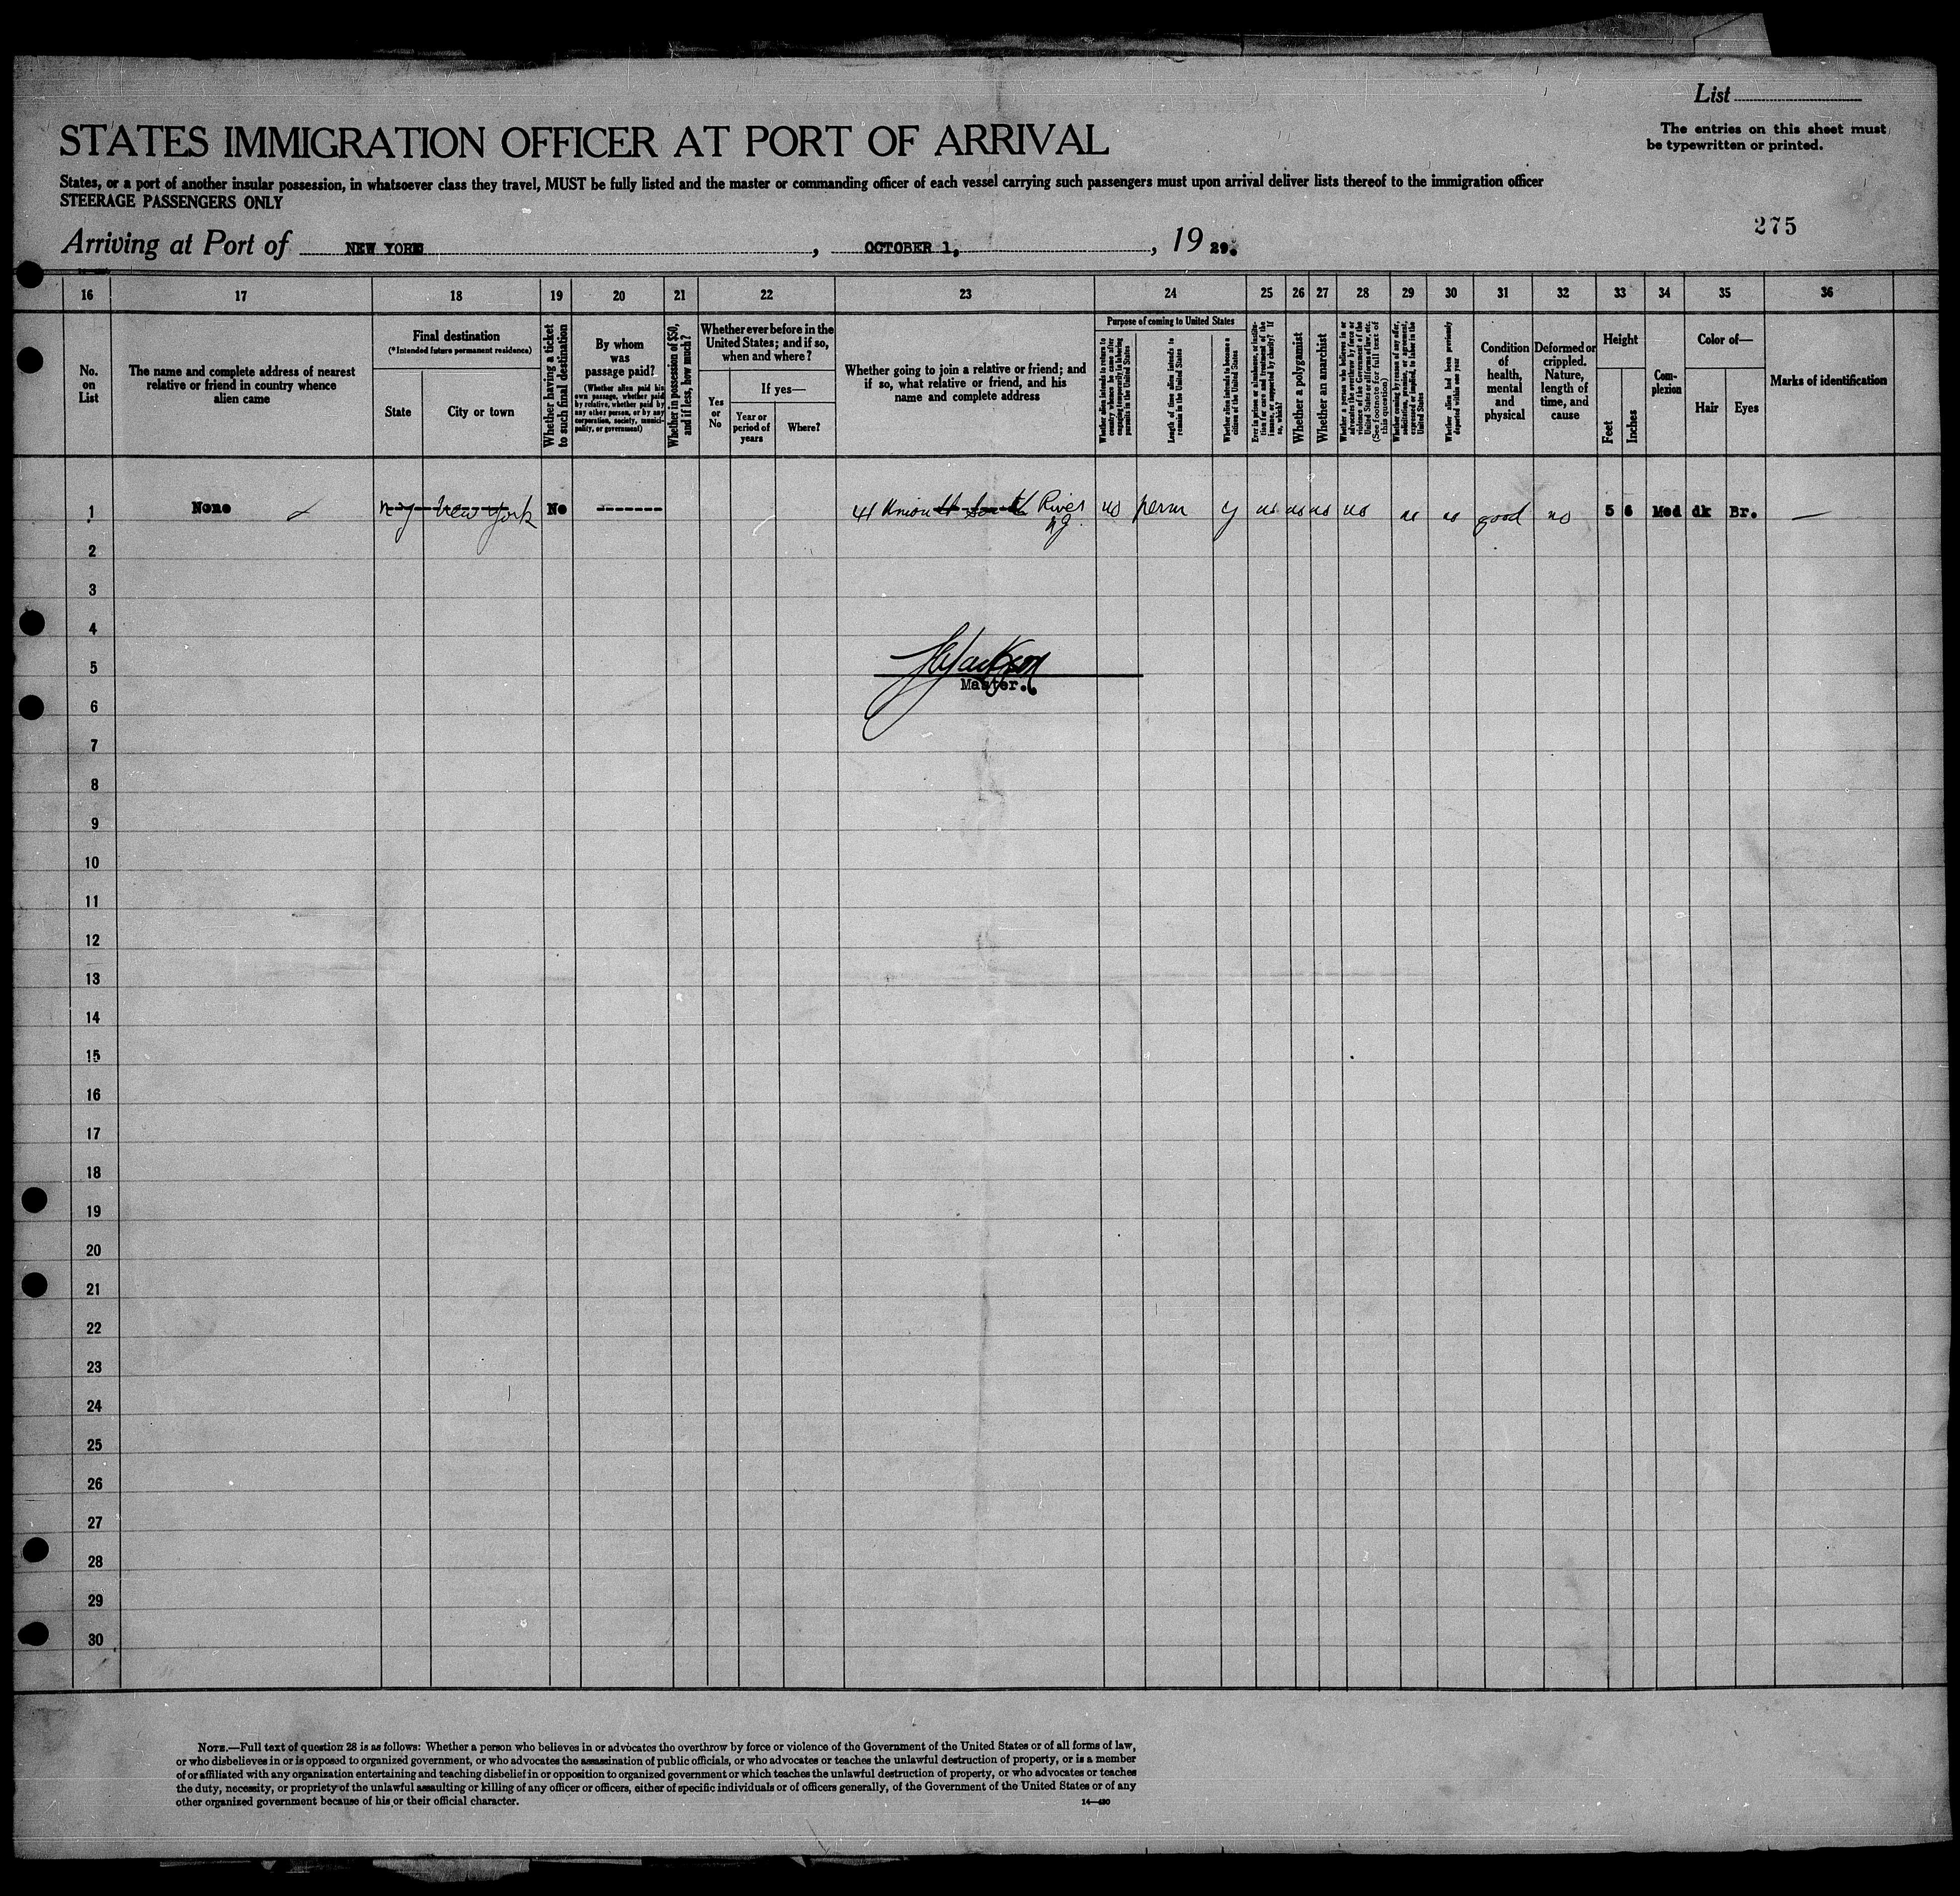 List
STATES IMMIGRATION OFFICER AT PORT OF ARRIVAL
The entries on this sheet must
be typewritten or printed.
States, or a port of another insular possession, in whatsoever class they travel, MUST be fully listed and the master or commanding officer of each vessel carrying such passengers must upon arrival deliver lists thereof to the immigration officer
STEERAGE PASSENGERS ONLY
275
Arriving at Port of NEW YORK, OCTOBER 1, , 19 29.
16 17 18 19 20 21 22 23 24 25 26 27 28 29 30 31 32 33 34 35 36
No.
on
List
The name and complete address of nearest
relative or friend in country whence
alien came
Final destination
(*Intended future permanent residence)
State
City or town
Whether having a ticket
to such final destination
By whom
was
passage paid?
(Whether alien paid his
own passage, whether paid
by relative, whether paid by
any other person, or by any
corporation, society, munici-
pality, or government)
Whether in possession of $50,
and if less, how much?
Whether ever before in the
United States; and if so,
when and where?
Yes
or
No
If yes—
Year or
period of
years
Where?
Whether going to join a relative or friend; and
if so, what relative or friend, and his
name and complete address
Purpose of coming to United States
Whether alien intends to return to
country whence he came after
engaging temporarily in laboring
pursuits in the United States
Length of time alien intends to
remain in the United States
Whether alien intends to become a
citizen of the United States
Ever in prison or almshouse, or institu-
tion for care and treatment of the
insane, or supported by charity? If
so, which?
Whether a polygamist
Whether an anarchist
Whether a person who believes in or
advocates the overthrow by force or
violence of the Government of the
United States or all forms of law, etc.
(See footnote for full text of
this question)
Whether coming by reason of any offer,
solicitation, promise, or agreement,
expressed or implied, to labor in the
United States
Whether alien had been previously
deported within one year
Condition
of
health,
mental
and
physical
Deformed or
crippled.
Nature,
length of
time, and
cause
Height
Feet
Inches
Com-
plexion
Color of—
Hair
Eyes
Marks of identification
1 None NJ New York No ------- 41 Union St South River no perm y no no no no no no good no 5 6 Med dk Br. —
NJ
2
3
4
5
Master.
6
7
8
9
10
11
12
13
14
15
16
17
18
19
20
21
22
23
24
25
26
27
28
29
30
NOTE.—Full text of question 28 is as follows: Whether a person who believes in or advocates the overthrow by force or violence of the Government of the United States or of all forms of law,
or who disbelieves in or is opposed to organized government, or who advocates the assassination of public officials, or who advocates or teaches the unlawful destruction of property, or is a member
of or affiliated with any organization entertaining and teaching disbelief in or opposition to organized government or which teaches the unlawful destruction of property, or who advocates or teaches
the duty, necessity, or propriety of the unlawful assaulting or killing of any officer or officers, either of specific individuals or of officers generally, of the Government of the United States or of any
other organized government because of his or their official character.
14—430